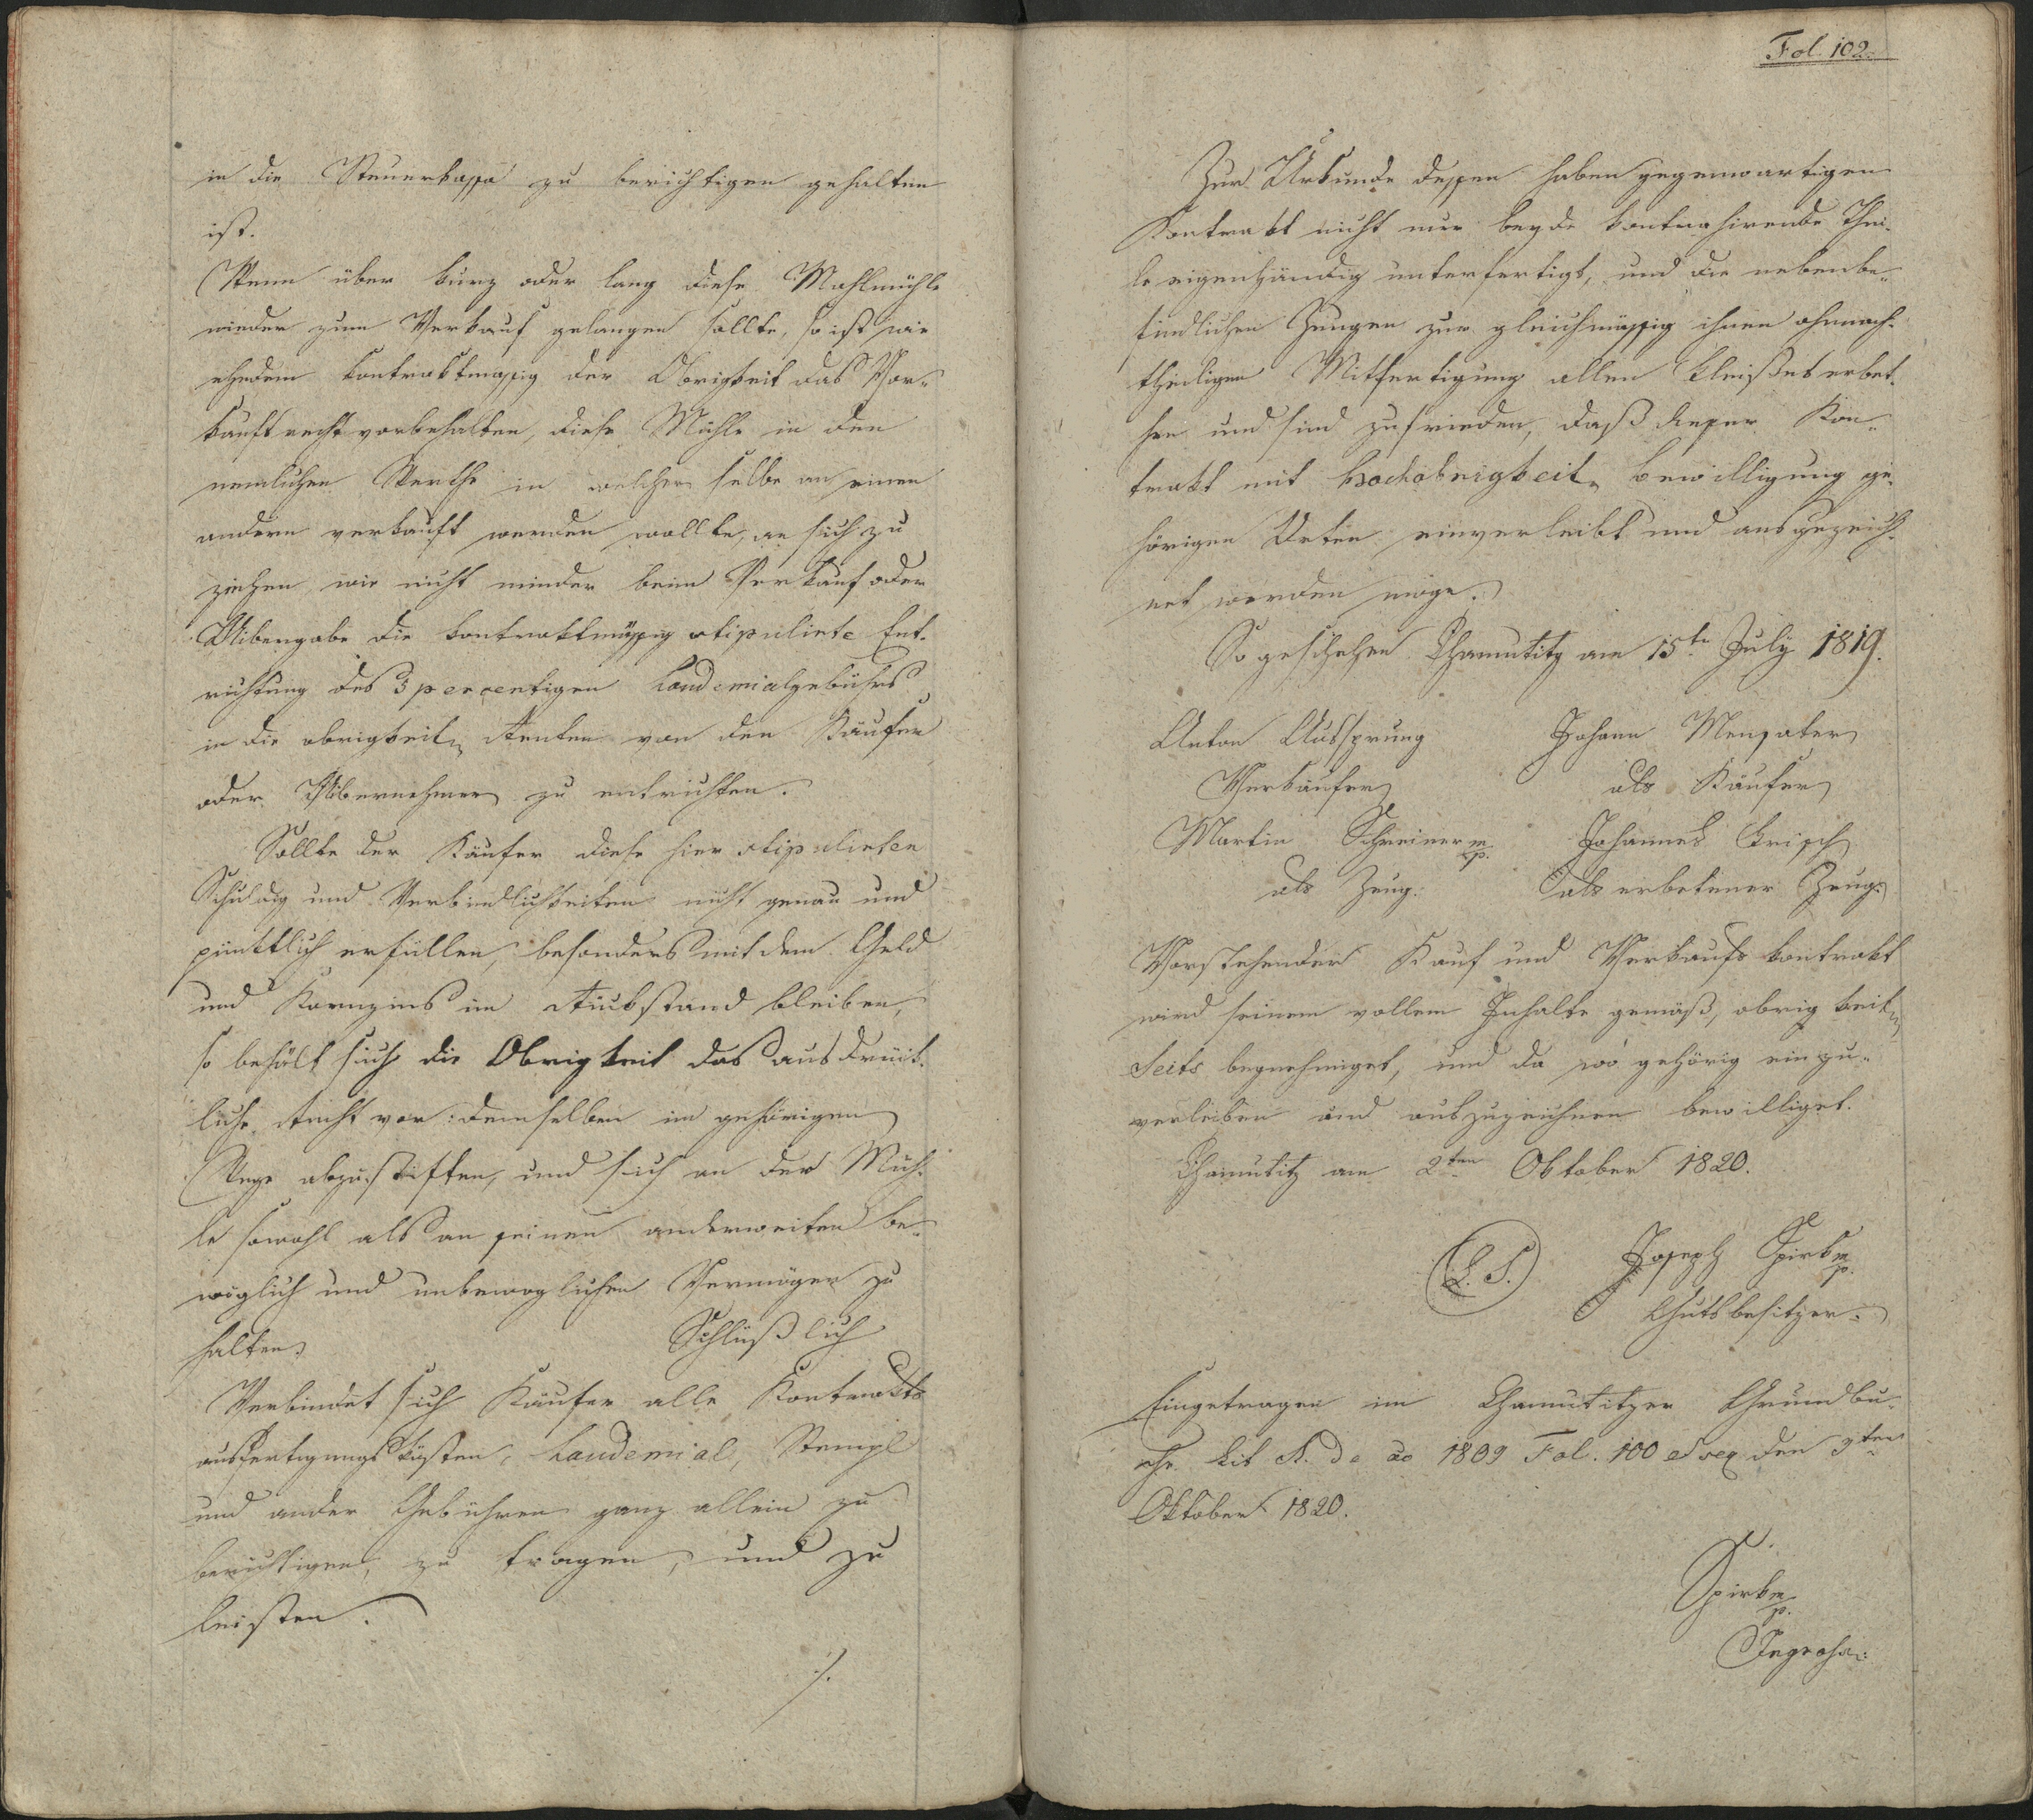 in die Steuerkassa zu berichtigen gehalten
ist.
Wenn über kurz oder lang diese Mahlmühle
wieder zum Verkauf gelangen sollte, so ist wie
ehedem kontraktmässig der Obrigkeit das Vor-
kaufsrecht vorbehalten, diese Mühle in den
nemlichen Werthe in welcher selbe an einen
andern verkauft werden wollte, an sich zu
ziehen, wie nicht minder beim Verkauf oder
Uibergabe die kontraktmässig stipulirte Ent-
richtung des 3 percentigen Laudemialgebührs
in die obrigkeitl. Renten von den Käufer
oder Uibernehmer zu entrichten.
Sollte der Käufer diese hier stipulirten
Schuldig und Verbindlichkeiten nicht genau und
pünktlich erfüllen, besonders mit dem Geld
und Kornzins im Rückstand bleiben,
so behält sich die Obrigkeit das ausdrück-
liche Recht vor: demselben im gehörigen
Wege abzustiften, und sich an der Müh-
le sowohl als an seinen anderweiten be-
weglich und unbeweglichen Vermögen zu
halten. Schlüßlich
Verbindet sich Käufer alle Kontrakts
ausfertigungskösten, Laudemial, Stempl
und ander Gebühren ganz allein zu
berichtigen, zu tragen, und zu
leisten.
./.
Fol. 102.
Zur Urkunde dessen haben gegenwartigen
Kontrakt nicht nur beyde kontrahirende Thei-
le eigenhändig unterfertigt, und die nebenbe-
findlichen Zeugen zur gleichmässig ihnen ohnnach-
theiligen Mitfertigung allen Fleißes erbet-
hen und sind zufrieden, daß dieser Kon-
trakt mit hochobrigkeitl. Bewilligung ge-
hörigen Orten einverleibt und ausgezeich-
net werden möge.
So geschehen Chamutitz am 15te July 1819.
Anton Aussprung Johann
Verkäufer als Käufer
Martin Schreiner mp. Johannes Krisch
als Zeug. als erbetener Zeug.
Vorstehender Kauf und Verkaufs kontrakt
wird seinem vollem Inhalte gemäß, obrigkeitl.
Seits begnehmiget, und da wo gehörig einzu-
verleiben und auszuzeichnen bewilliget.
Chamutitz am 2ten Oktober 1820.
(L. S.) Joseph Spirk mp.
Gutsbesitzer.
Eingetragen im Chamutitzer Grundbu-
che Lit A. de ao 1809 Fol. 100 et seq den 9ten
Oktober 1820.
Spirk mp.